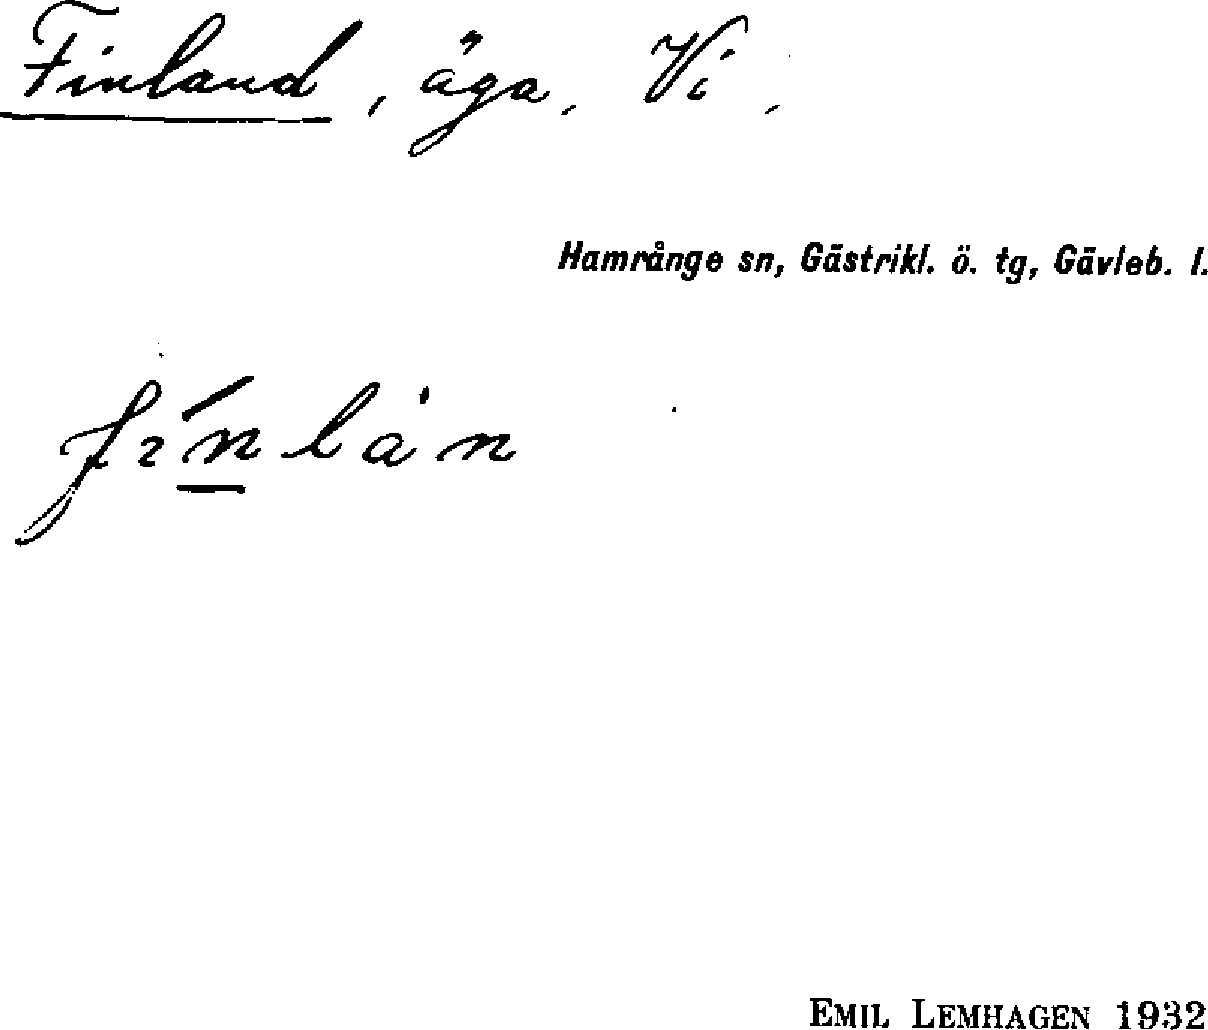 Finland, äga, Vi,
Hamrånge sn, Gästrikl. ö. tg, Gävleb. l.
fìn̲làn
EMIL LEMHAGEN 1932